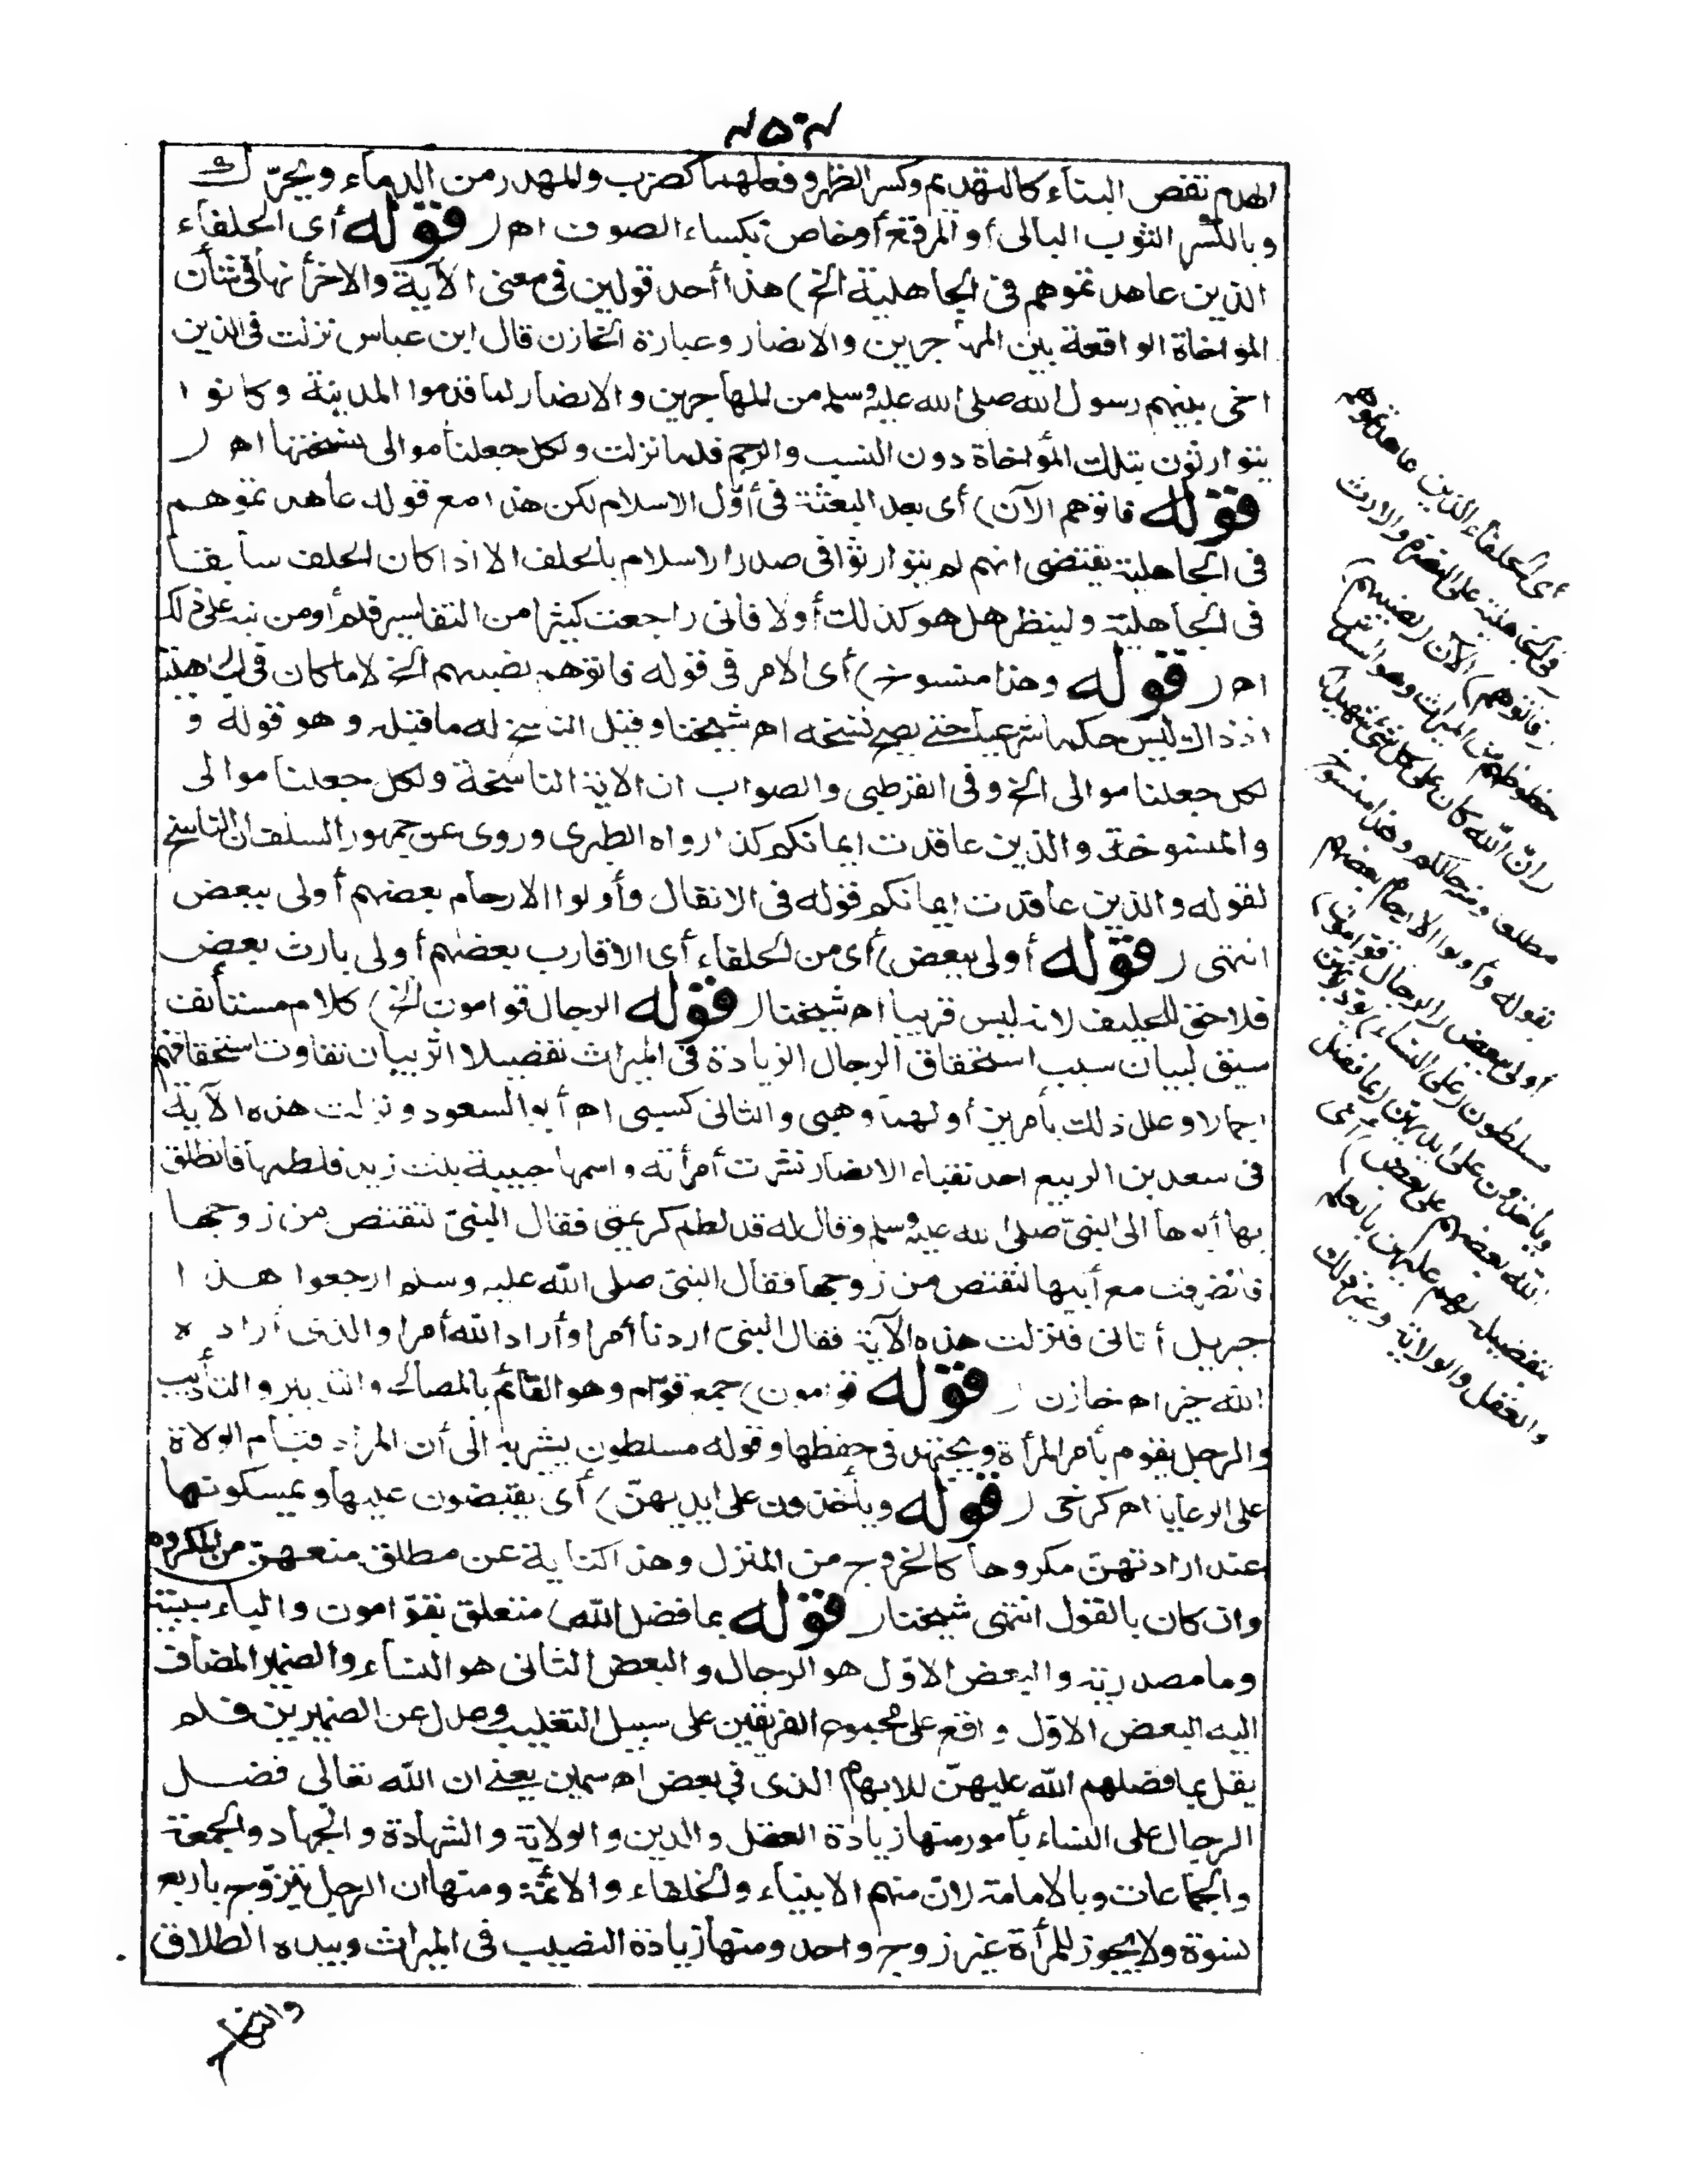 الهدم نقض البناء كالتهديم وكسر الظهر وفعلهما كضرب والمهدر من الدماء ويحرّك
وبالكسر الثوب البالى أو المرقع أو خاص بكساء الصوف اهـ ( قوله أى الحلفاء
الذين عاهدتموهم فى الجاهلية الخ) هذا أحد قولين فى معنى الآية والاخر أنها فى شأن
المواخاة الواقعة بين المهاجرين والانصار وعبارة الخازن قال ابن عباس نزلت فى الذين
اخى بينهم رسول الله صلى الله عليه وسلم من المهاجرين والانصار لما قدموا المدينة وكانوا
يتوارثون بتلك المؤاخاة دون النسب والرحم فلما نزلت ولكل جعلنا موالى نسختها اهـ (
قوله فاتوهم الآن) أى بعد البعثة فى أوّل الاسلام لكن هذا مع قوله عاهدتموهم
فى الجاهلية يقتضى انهم لم يتوارثوا فى صدر الاسلام بالحلف الا اذا كان الحلف سابقا
فى الجاهلية ولينظر هل هو كذلك أولا فانى راجعت كثيرا من التفاسير فلم أر من نبه على ذلك
اهـ ( قوله وهذا منسوخ) أى الامر فى قوله فاتوهم نصيبهم الخ لا ما كان فى الجاهلية
اذ ذاك ليس حكما شرعيا حتى يصح نسخه اهـ شيخنا وقيل الناسخ له ما قبله وهو قوله و
لكل جعلنا موالى الخ وفى القرطبى والصواب ان الاية الناسخة ولكل جعلنا موالى
والمنسوخة والذين عاقدت ايمانكم كذا رواه الطبرى وروى عن جمهور السلف ان الناسخ
لقوله والذين عاقدت ايمانكم قوله فى الانفال وأولوا الارحام بعضهم أولى ببعض
انتهى ( قوله أولى ببعض) أى من الحلفاء أى الاقارب بعضهم أولى بارث بعض
فلا حق للحليف لانه ليس قريبا اهـ شيخنا ( قوله الرجال قوامون الخ) كلام مستأنف
سيق لبيان سبب استحقاق الرجال الزيادة فى الميراث تفصيلا اثر بيان تفاوت استحقاقهم
اجمالا وعلل ذلك بأمرين أولهما وهبى والثانى كسبى اهـ أبو السعود ونزلت هذه الآية
فى سعد بن الربيع احد نقباء الانصار نشزت أمرأته واسمها حبيبة بنت زيد فلطمها فانطلق
بها أبوها الى النبىّ صلى الله عليه وسلم وقال له قد لطم كريمتى فقال النبىّ لتقتص من زوجها
فانصرفت مع أبيها لتقتص من زوجها فقال النبىّ صلى الله عليه وسلم ارجعوا هذا
جبريل أتانى فنزلت هذه الآية فقال النبىّ اردنا أمرا وأراد الله أمرا والذى أراده
الله خير اهـ خازن ( قوله قوامون) جمع قوّام وهو القائم بالمصالح والتدبير والتأديب
والرجل يقوم بأمر المرأة ويجتهد فى حفظها وقوله مسلطون يشير به الى أن المراد قيام الولاة
على الرعايا اهـ كرخى ( قوله ويأخذون على ايديهنّ) أى يقبضون عليها ويمسكونها
عند ارادتهنّ مكروها كالخروج من المنزل وهذا كناية عن مطلق منعهنّ من المكروه
وان كان بالقول انتهى شيخنا ( قوله بما فضل الله) متعلق بقوّامون والباء سببية
وما مصدرية والبعض الاوّل هو الرجال والبعض الثانى هو النساء والضمير المضاف
اليه البعض الاوّل واقع على مجموع الفريقين على سبيل التغليب وعدل عن الضميرين فلم
يقل بما فضلهم الله عليهنّ للابهام الذى فى بعض اهـ سمين يعنى ان الله تعالى فضل
الرجال على النساء بأمور منها زيادة العقل والدين والولاية والشهادة والجهاد والجمعة
والجماعات وبالامامة لان منهم الانبياء والخلفاء والائمة ومنها ان الرجل يتزوّج باربع
نسوة ولا يجوز للمرأة غير زوج واحد ومنها زيادة النصيب فى الميراث وبيده الطلاق
أى الحلفاء الذين عاهدتموهم
فى الجاهلية على النصرة والارث
(فاتوهم) الآن (نصيبهم)
حظوظهم من الميراث وهو السدس
(انّ الله كان على كل شئ شهيدا)
مطلعا ومنه حالكم وهذا منسوخ
بقوله وأولوا الارحام بعضهم
أولى ببعض (الرجال قوّامون)
مسلطون (على النساء) يؤدبونهنّ
ويأخذون على ايديهنّ (بما فضل
الله بعضهم على بعض) أى
بتفضيله لهم عليهن بالعلم
والعقل والولاية وغير ذلك